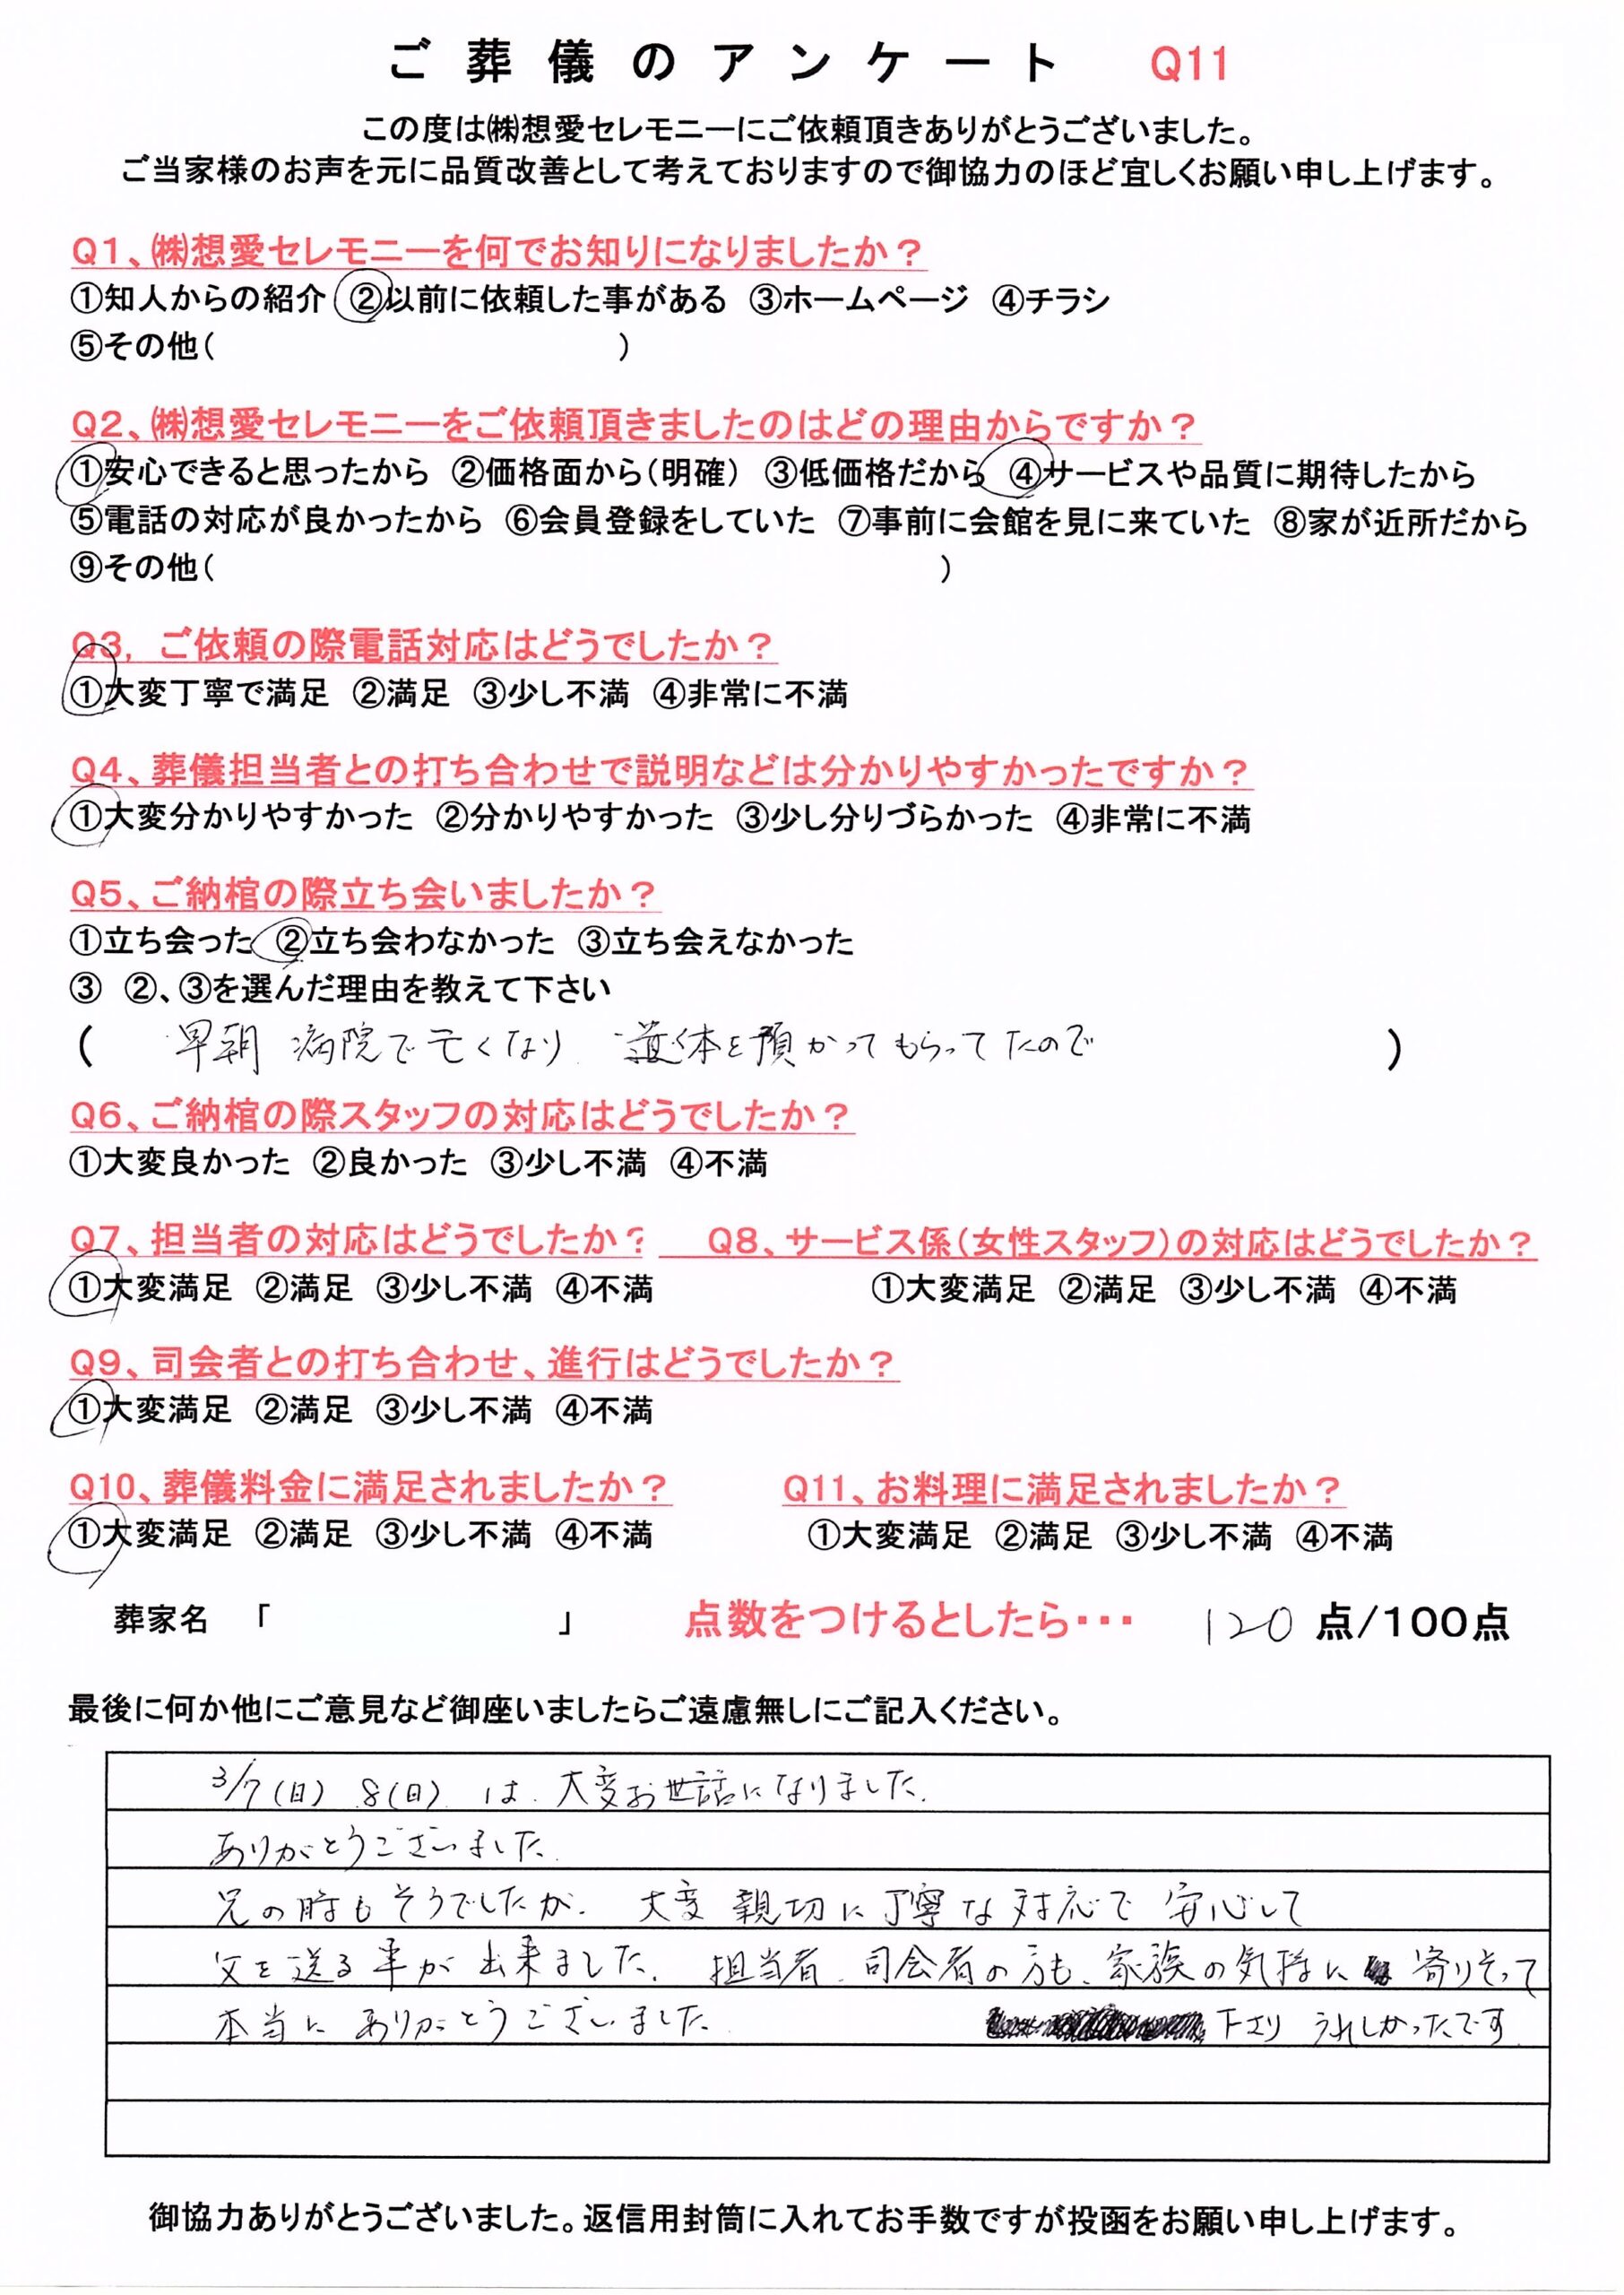 ご葬儀のアンケート Q11
この度は㈱想愛セレモニーにご依頼頂きありがとうございました。
ご当家様のお声を元に品質改善として考えておりますので御協力のほど宜しくお願い申し上げます。
Q1、㈱想愛セレモニーを何でお知りになりましたか？
①知人からの紹介 ②以前に依頼した事がある ③ホームページ ④チラシ
⑤その他( )
Q2、㈱想愛セレモニーをご依頼頂きましたのはどの理由からですか？
①安心できると思ったから ②価格面から(明確) ③低価格だから ④サービスや品質に期待したから
⑤電話の対応が良かったから ⑥会員登録をしていた ⑦事前に会館を見に来ていた ⑧家が近所だから
⑨その他( )
Q3, ご依頼の際電話対応はどうでしたか？
①大変丁寧で満足 ②満足 ③少し不満 ④非常に不満
Q4、葬儀担当者との打ち合わせで説明などは分かりやすかったですか？
①大変分かりやすかった ②分かりやすかった ③少し分りづらかった ④非常に不満
Q5、ご納棺の際立ち会いましたか？
①立ち会った ②立ち会わなかった ③立ち会えなかった
③ ②、③を選んだ理由を教えて下さい
( 早朝 病院で亡くなり 遺体を預かってもらってたので )
Q6、ご納棺の際スタッフの対応はどうでしたか？
①大変良かった ②良かった ③少し不満 ④不満
Q7、担当者の対応はどうでしたか？ Q8、サービス係(女性スタッフ)の対応はどうでしたか？
①大変満足 ②満足 ③少し不満 ④不満 ①大変満足 ②満足 ③少し不満 ④不満
Q9、司会者との打ち合わせ、進行はどうでしたか？
①大変満足 ②満足 ③少し不満 ④不満
Q10、葬儀料金に満足されましたか？ Q11、お料理に満足されましたか？
①大変満足 ②満足 ③少し不満 ④不満 ①大変満足 ②満足 ③少し不満 ④不満
葬家名 「 」 点数をつけるとしたら・・・ 120 点/100点
最後に何か他にご意見など御座いましたらご遠慮無しにご記入ください。
3/7(日) 8(日) は 大変お世話になりました.
ありがとうございました.
兄の時もそうでしたが. 大変 親切に丁寧な対応で 安心して
父を送る事が出来ました. 担当者. 司会者の方も、家族の気持に 寄りそって
本当に ありがとうございました. 下さり うれしかったです
御協力ありがとうございました。返信用封筒に入れてお手数ですが投函をお願い申し上げます。